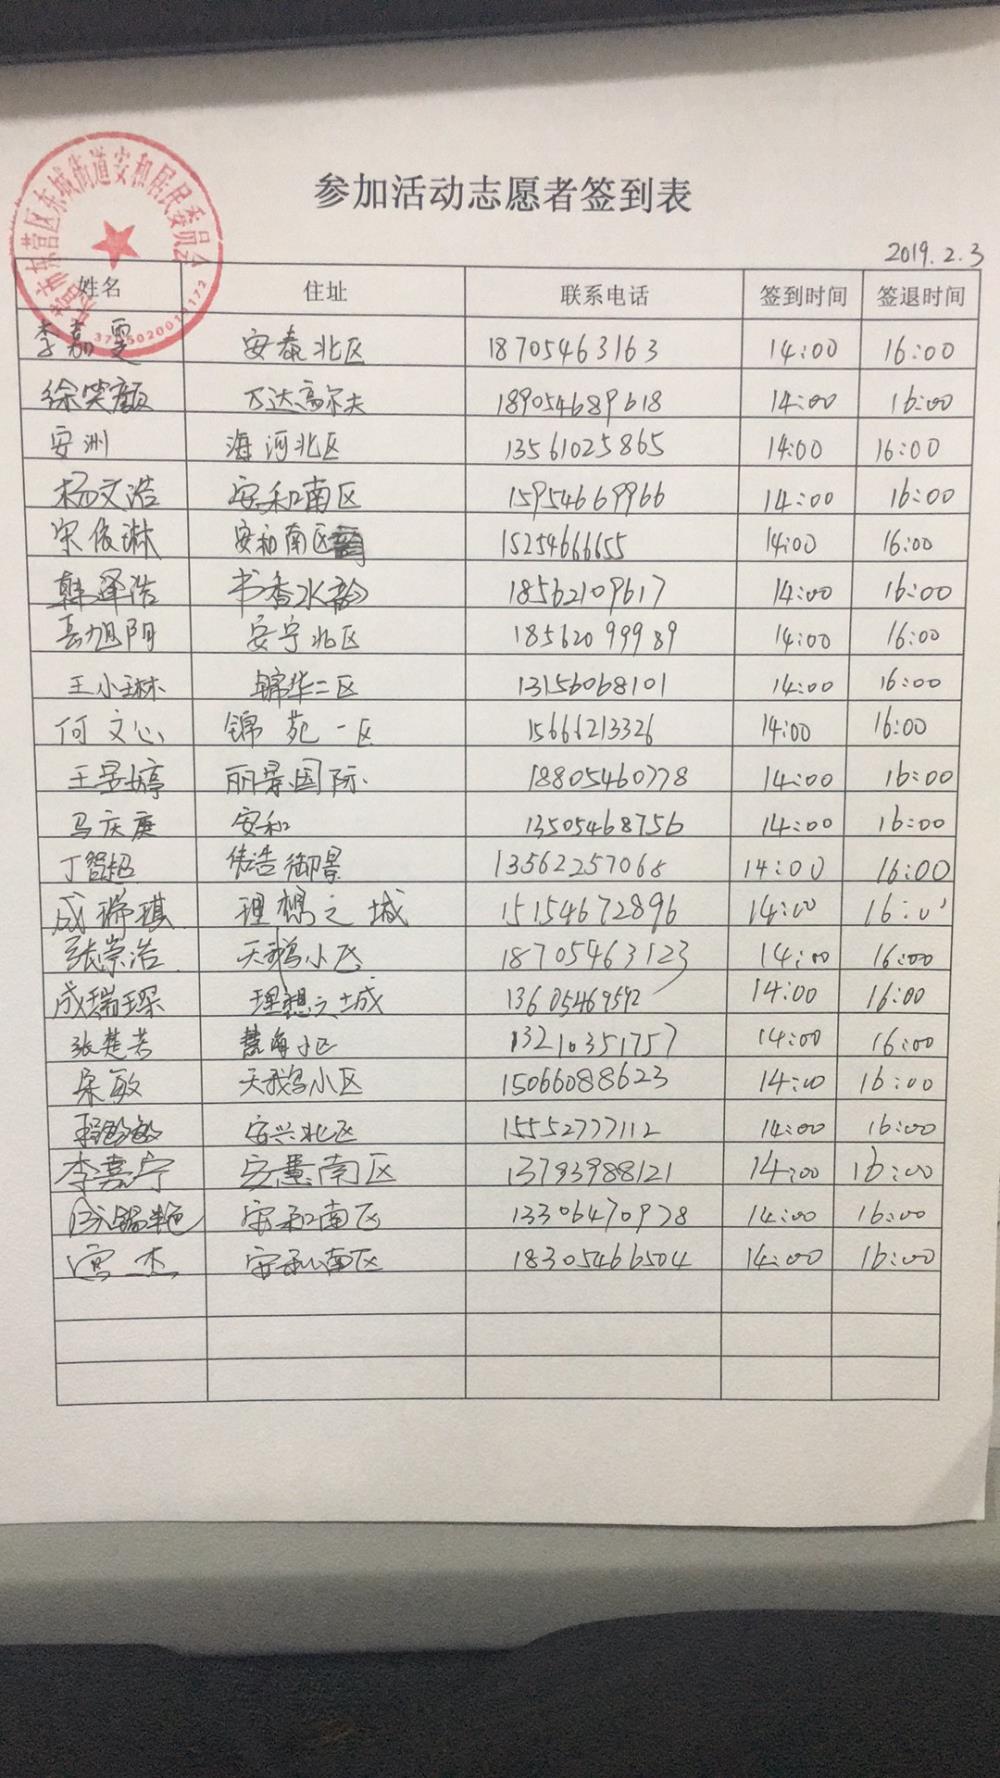 东营市东营区东城街道安和居民委员会
参加活动志愿者签到表
2019.2.3
姓名 住址 联系电话 签到时间 签退时间
李嘉雯 安泰北区 18705463163 14:00 16:00
徐笑颜 万达高尔夫 189054689618 14:00 16:00
安洲 海河北区 13561025865 14:00 16:00
杨文浩 安和南区 15954669966 14:00 16:00
宋俊琳 安和南区 15254666655 14:00 16:00
韩泽浩 书香水韵 18562109617 14:00 16:00
旭阳 安宁北区 1856209 9989 14:00 16:00
王小琳 锦华二区 13156068101 14:00 16:00
何文心 锦苑一区 15666213326 14:00 16:00
王昱婷 丽景国际 18805460778 14:00 16:00
马庆庚 安和 13505468756 14:00 16:00
丁智超 伟浩御景 13562257068 14:00 16:00
成瑞琪 理想之城 15154672896 14:00 16:00
张崇浩 天鹅小区 18705463123 14:00 16:00
成瑞琛 理想之城 13605469592 14:00 16:00
张楚若 慧海小区 13210351757 14:00 16:00
宋敏 天鹅小区 15066088623 14:00 16:00
安兴北区 15552777112 14:00 16:00
李嘉宁 安慧南区 13793988121 14:00 16:00
安和南区 13306470978 14:00 16:00
宫杰 安和南区 18305466504 14:00 16:00